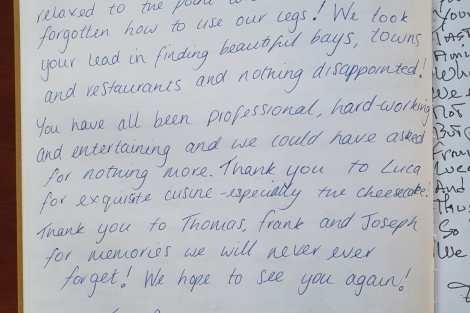 relaxed to the point
forgotten how to use our legs! We took
your lead in finding beautiful bays, towns
and restaurants and nothing disappointed!
You have all been professional, hard-working
and entertaining and we could have asked
for nothing more. Thank you to Luca
for exquisite cusine - especially the cheesecake!
Thank you to Thomas, Frank and Joseph
for memories we will never ever
forget! We hope to see you again!
You
We
And
So
We